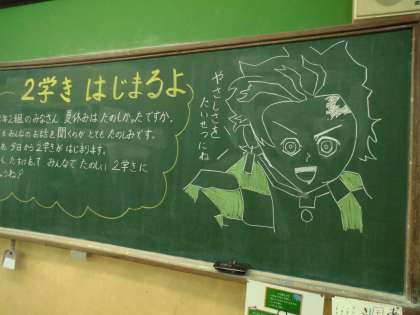 2学き はじまるよ
年2組のみなさん 夏休みは たのしかったですか。
みんなのお話を聞くのが とても たのしみです。
今日から2学きが はじまります。
みんなで たのしい 2学きに
しようね!
やさしさを
たいせつにね!